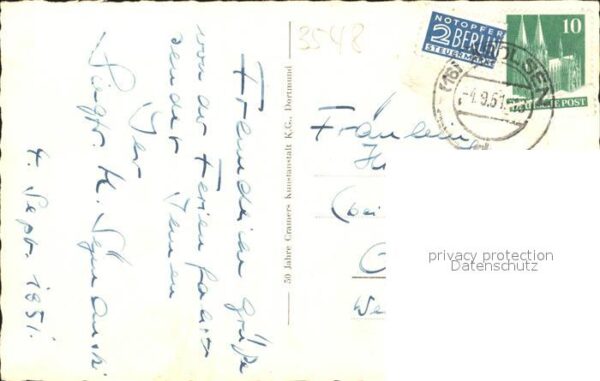 Freundliche Grüße
von der Ferienfahrt
sendet Ihnen
Ihr
4. Sept. 1951.
50 Jahre Cramers Kunstanstalt K.G., Dortmund
3548
NOTOPFER
2 BERLIN
STEUERMARKE
10
DEUTSCHE POST
(16)
OLSEN
-4.9.51
Fräulein
(bei
privacy protection
Datenschutz